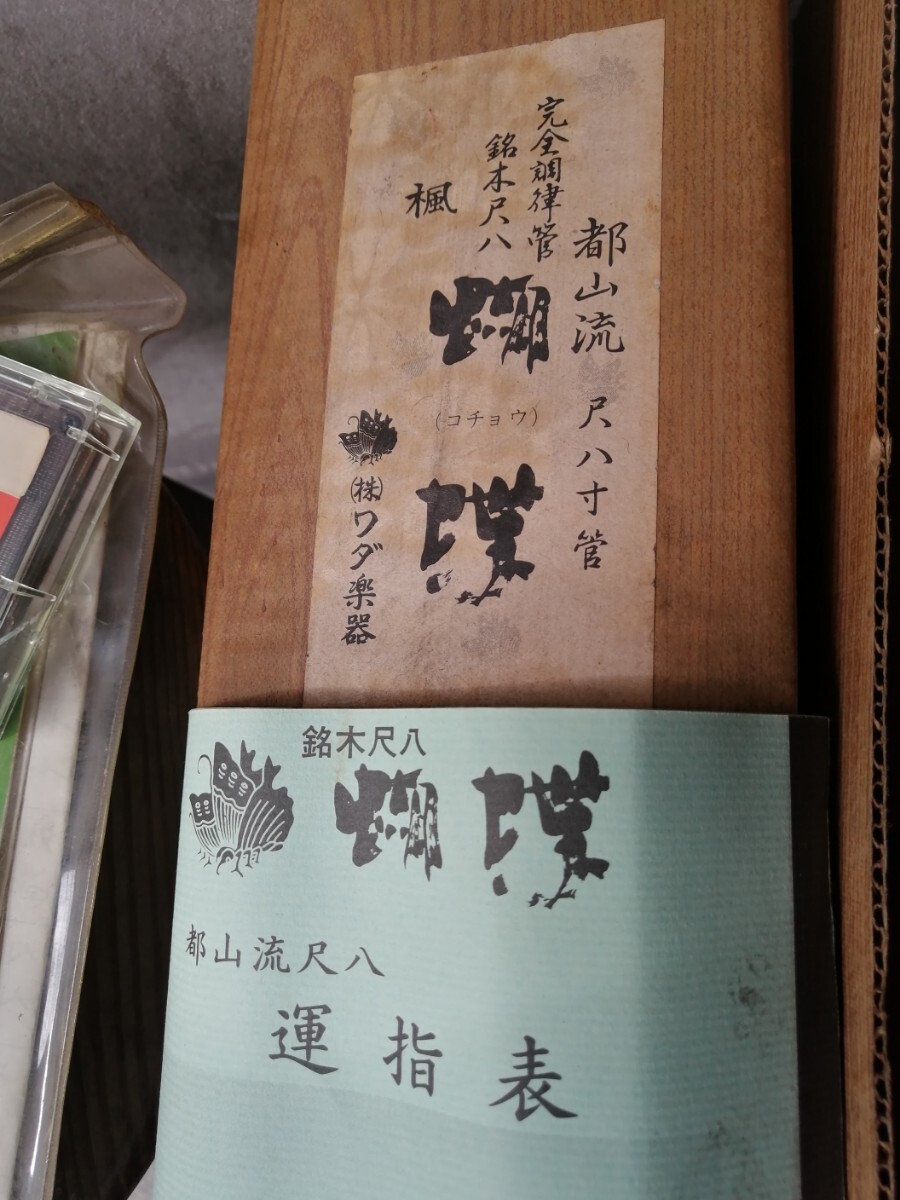 都山流 尺八寸管
完全調律管
銘木尺八
楓
蝴蝶
(コチョウ)
㈱ワダ楽器
銘木尺八
蝴蝶
都山流尺八
運指表